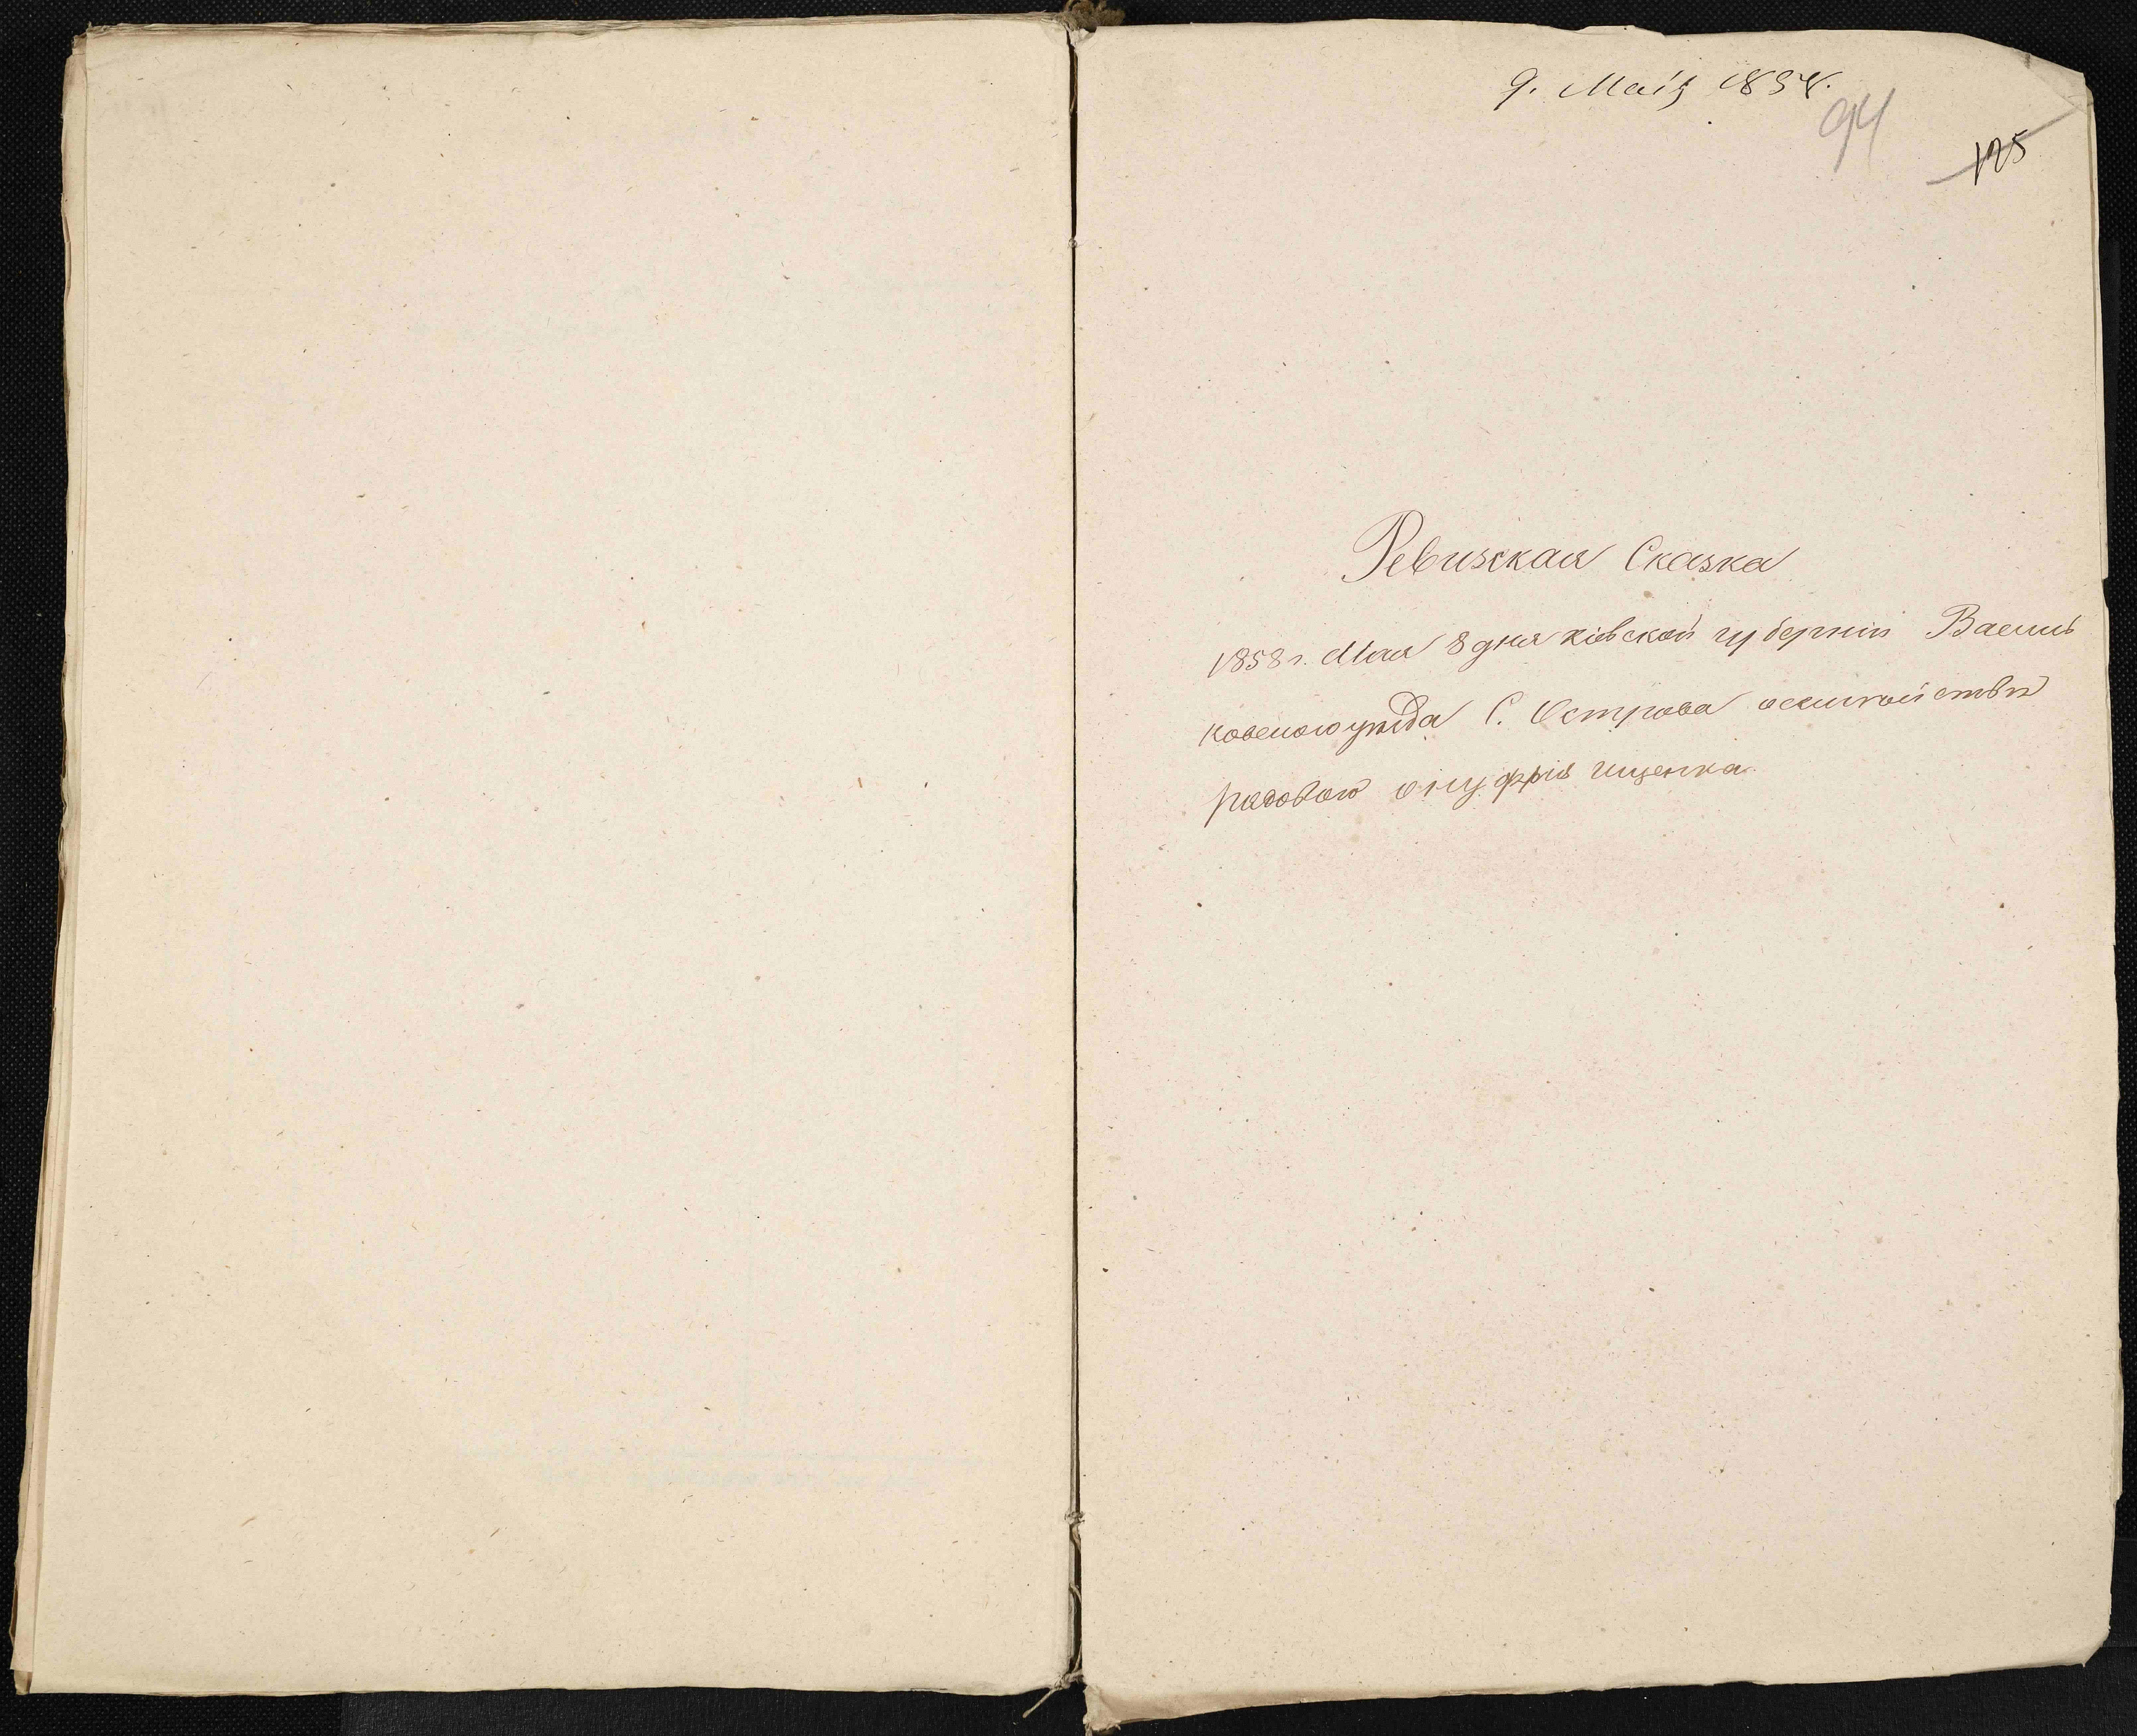 9. Май 1858.
94
125
Ревизская Сказка
1858 г. Мая 8 дня Кіевской губерніи Василь
ковского уѣзда С. Острова о семействѣ
рядового Онуфрія Ищенка.